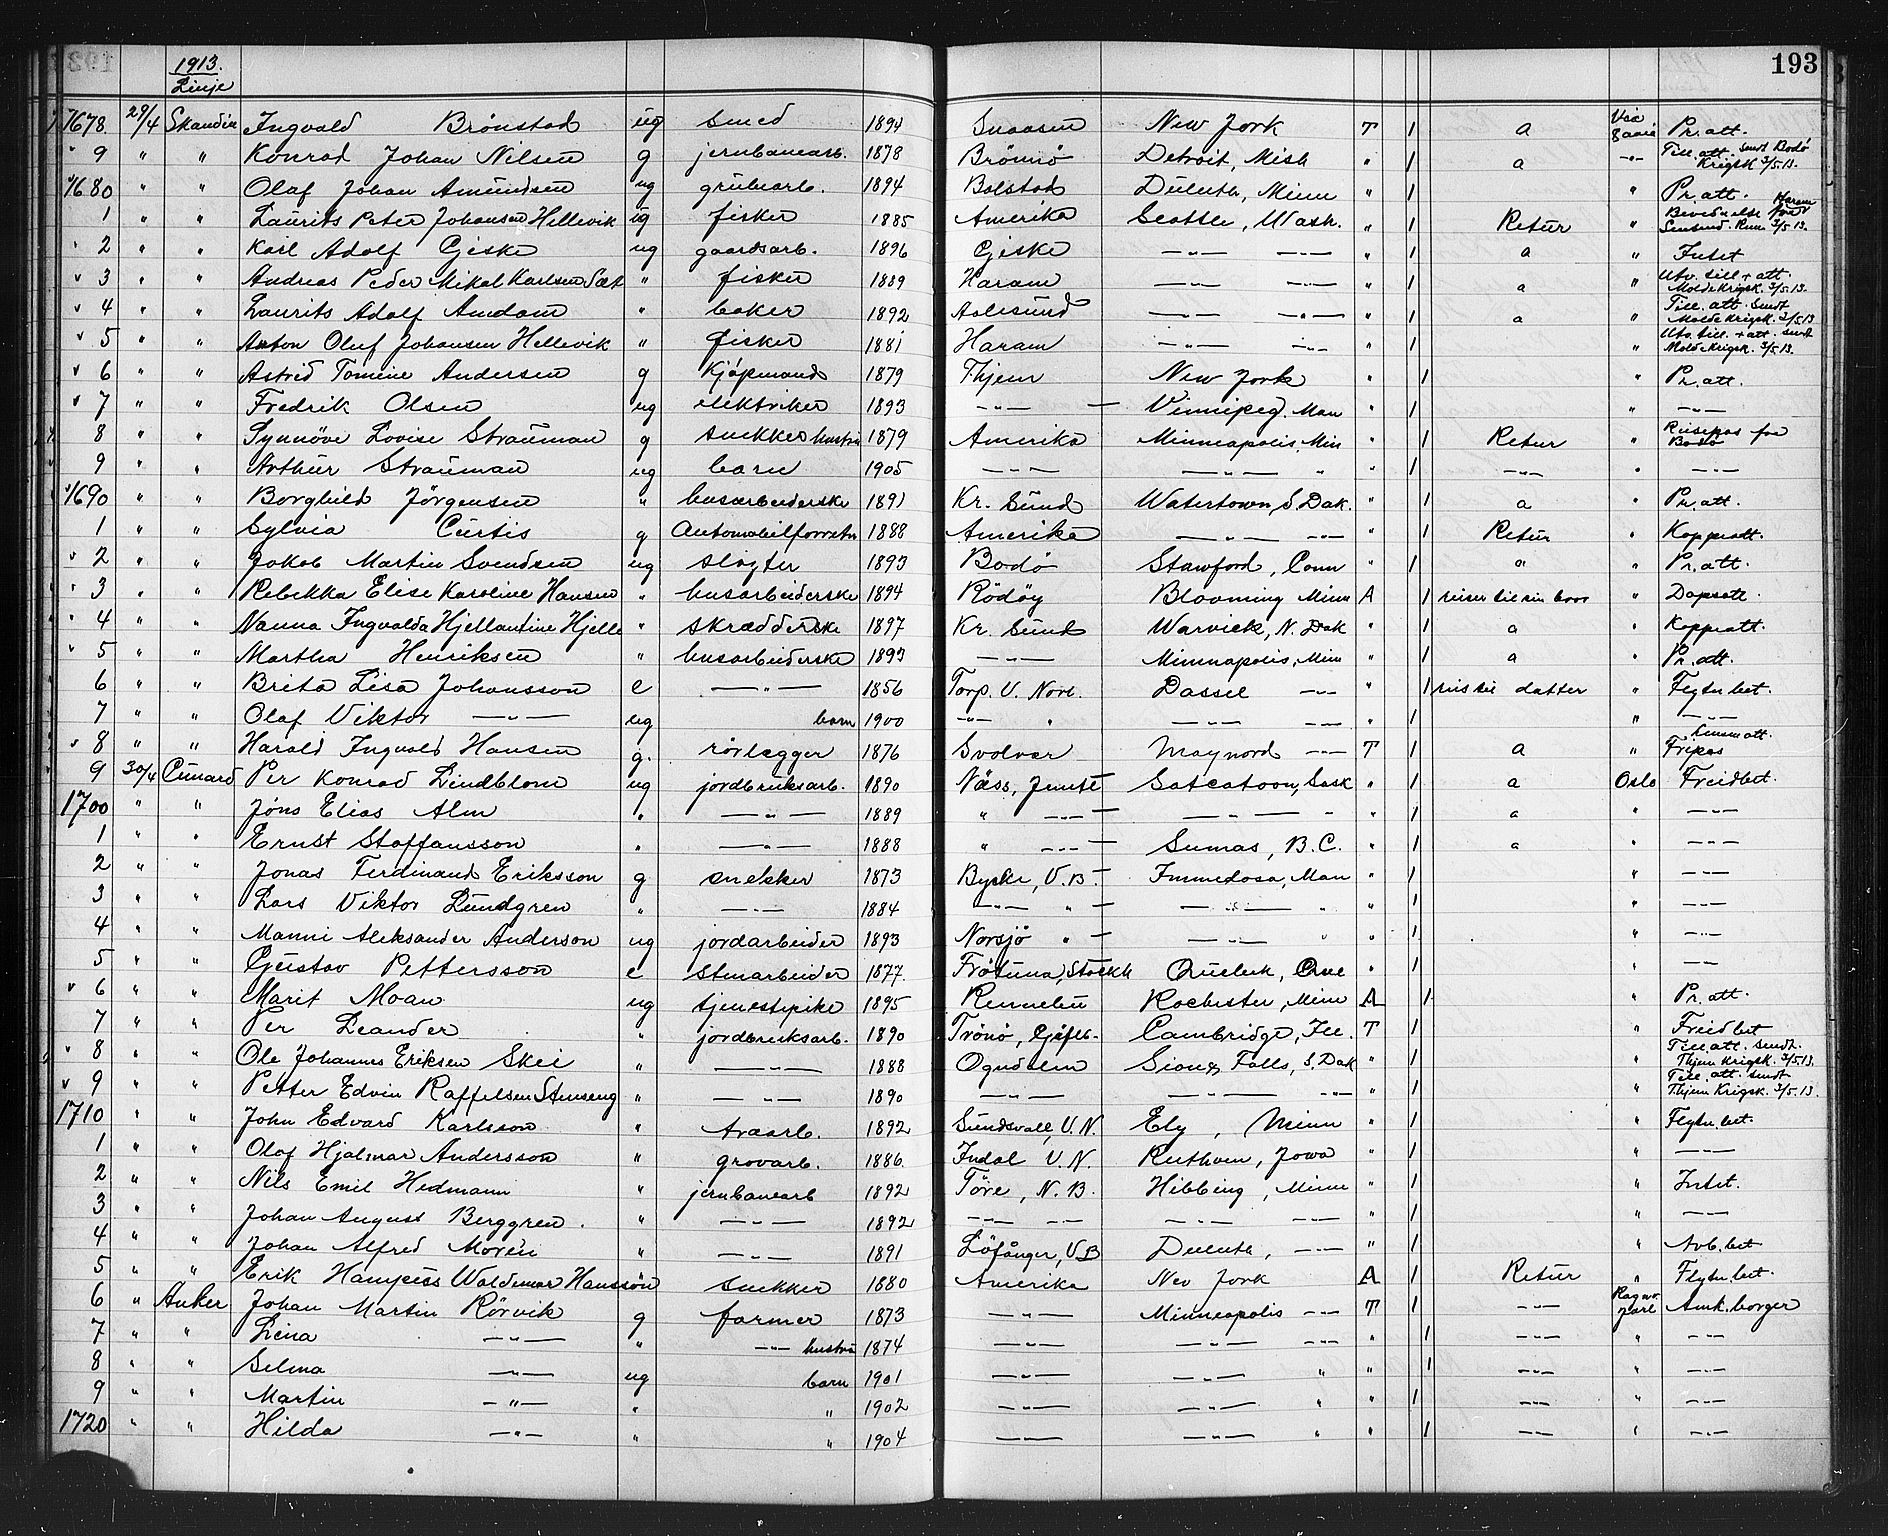 193
1913.
Linje
7678 29/4 Skandin Ingvald Brönstad ug smed 1894 Snaasen New York T 1 a Via Pr. att.
9 " " Konrad Johan Nilsen g jernbanearb. 1878 Brönnö Detroit, Mish " 1 a -"- Till. att. sendt Bodö Krigsk. 3/5.13.
1680 " " Olaf Johan Amundsen ug grubearb. 1894 Bolstad Duluth, Minn " 1 " Pr. att.
1 " " Laurits Peter Johansen Hellevik ug fisker 1885 Amerika Seattle, Wash. " 1 Retur " Haram 3/5.13.
2 " " Karl Adolf Giske ug gaardsarb. 1896 Giske -"- -"- " 1 a " Intet
3 " " Andreas Peder Mikal Karlsen Sæt " fisker 1889 Haram -"- -"- " 1 a " Utv. till. + att. Molde Krigsk. 3/5.13.
4 " " Laurits Adolf Amdam " baker 1892 Aalesund -"- -"- " 1 a " Till. att. sendt Molde Krigsk. 3/5.13
5 " " Anton Oluf Johansen Hellevik " fisker 1881 Haram -"- -"- 1 " Utv. till. + att. sendt Molde Krigsk. 3/5.13.
6 " " Astrid Tomine Andersen g Kjöpmand 1879 Thjem New York " 1 " Pr. att.
7 " " Fredrik Olsen ug elektriker 1893 -"- Vinnipeg. Man " 1 " -"-
8 " " Synnöve Lovise Strauman g snekker hustru 1879 Amerika Minneapolis, Min " 1 Retur " Reisepas fra Bodö
9 " " Arthur Strauman ug barn 1905 -"- -"- " " 1 -"- " -"-
1690 " " Borghild Jörgensen " husarbeiderske 1891 Kr. Sund Watertown, S. Dak. " 1 a " Pr. att.
1 " " Sylvia Curtis g Automobilforretn 1888 Amerika -"- -"- " 1 Retur " Koppeatt.
2 " " Jakob Martin Svendsen ug slagter 1893 Bodö Stamford, Conn " 1 a " Pr. att.
3 " " Rebekka Elise Karoline Hansen " husarbeiderske 1894 Rödöy Blooming Minn A 1 reiser til sin bror " Dapsatt.
4 " " Nanna Ingvalda Hjellandine Hjelle " skrædderske 1897 Kr. Sund Warwick, N. Dak " 1 a " Koppeatt.
5 " " Martha Henriksen " husarbeiderske 1893 -"- Minnapolis, Min " 1 a " Pr. att.
6 " " Brita Lisa Johansson e -"- 1856 Torp. V. Norl. Dassel -"- " 1 reis til datter " Flytn. bet.
7 " " Olaf Viktor -"- ug barn 1900 -"- " -"- -"- " 1 " -"-
8 " " Harald Ingvald Hansen g. rörlægger 1876 Svolvær Maynord -"- T 1 a " Fripas
9 30/4 Cunard Per Konrad Lindblom ug jordbruksarb. 1890 Näss, Jemtl Satcatoon, Sask " 1 a Oslo Freidbet.
1700 " " Jöns Elias Alm " -"- 1889 " -"- -"- " " 1 a " -"-
1 " " Ernst Staffansson " -"- 1888 " -"- Sumas, B. C. " 1 a " -"-
2 " " Jonas Ferdinand Eriksson g snekker 1873 Byske, V. B. Immedosa, Man " 1 " -"-
3 " " Lars Viktor Lundgren " -"- 1884 -"- " -"- " " 1 " -"-
4 " " Manni Aleksander Anderson ug jordarbeider 1893 Norsjö " -"- " " 1 " -"-
5 " " Gustav Pettersson e Stenarbeider 1877. Frötuna, Stockh Quebek, Que " 1 " -"-
6 " " Marit Moan ug tjenestepike 1895 Rennebu Rochester, Minn A 1 " Pr. att.
7 " " Per Leander " jordbruksarb. 1890 Trönö, Gjäfleb. Cambridge, Ill. T 1 " Freidbet
8 " " Ole Johannes Eriksen Skei " -"- 1888 Ogndalen Sioux Falls, S. Dak " 1 " Till. att. sendt. Thjem Krigsk. 3/5.13.
9 " " Petter Edvin Raffelsen Stenseng " -"- 1890 -"- -"- -"- " 1 " Till. att. sendt Thjem Krigsk. 3/5.13.
1710 " " John Edvard Karlsson " traarb. 1892 Sundsvall, V. N. Ely, Minn " 1 " Flytn. bet.
1 " " Olaf Hjalmar Andersson " grovarb. 1886. Indal V. N. Ruthven, Jowa " 1 " -"-
2 " " Nils Emil Hedmann " jernbanearb 1892 Töre, N. B. Hibbing, Minn " 1 " Intet.
3 " " Johan August Berggren. " -"- 1892 -"- -"- -"- -"- " 1 " -"-
4 " " Johan Alfred Morén " -"- 1891 Löfånger, V. B Duluth, -"- " 1 " Arb. bet
5 " " Erik Hampus Waldemar Hansson " snekker 1880 Amerika Nev York A 1 Retur " Flytn. bet.
6 " Anker Johan Martin Rörvik g farmer 1873 -"- Minneapolis -"- T 1 -"- Ragnv. Jarl Amk. borger
7 " " Lina -"- " -"- hustru 1874 -"- -"- -"- " 1 -"- " -"-
8 " " Selma -"- ug barn 1901 -"- -"- " " 1 -"- " -"-
9 " " Martin -"- " " 1902 -"- -"- " " 1 -"- " -"-
1720 " " Hilda -"- " " 1904 -"- -"- " " 1 -"- " -"-